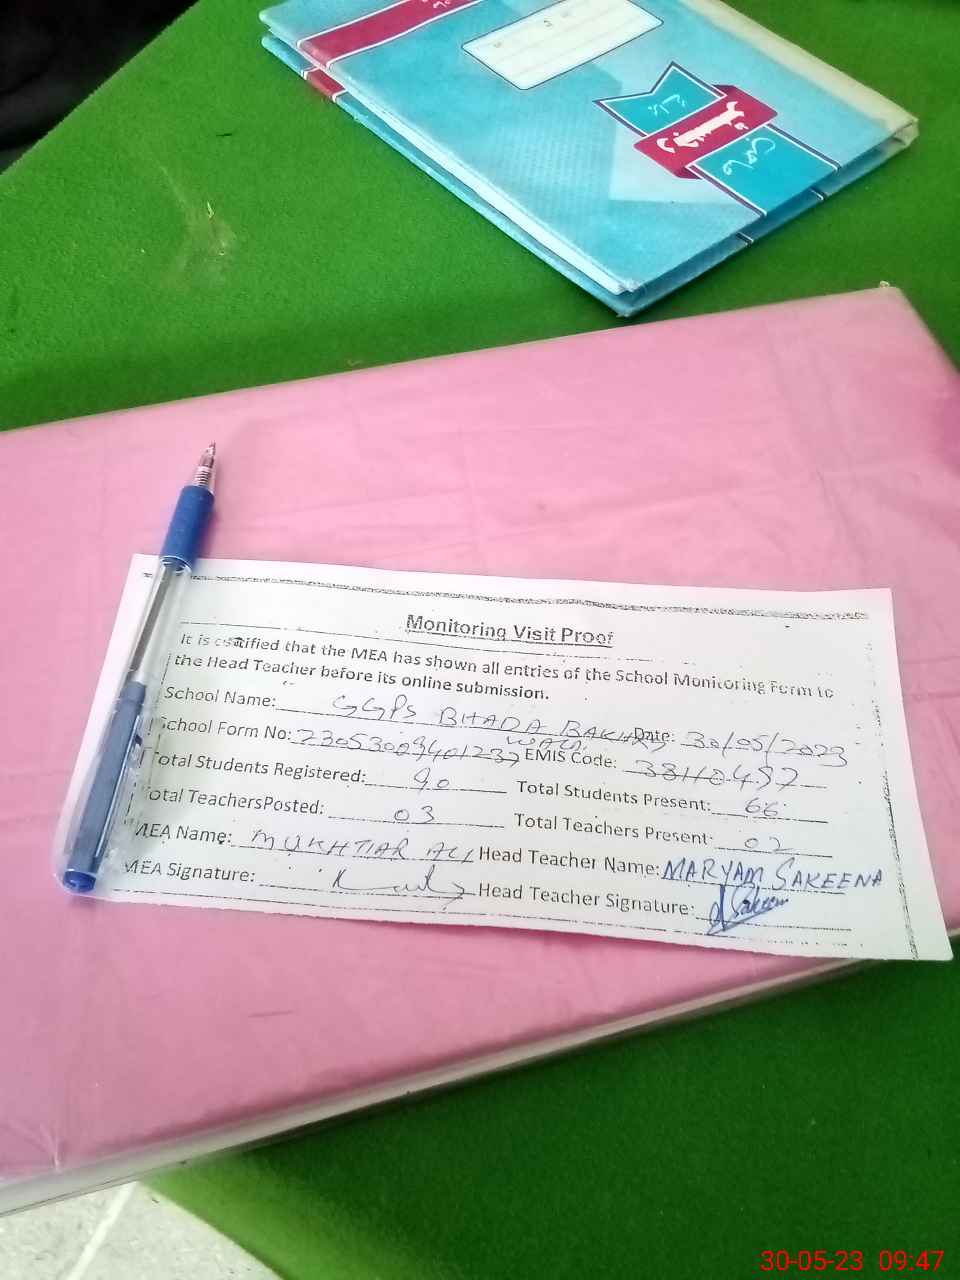 حاضری
رجسٹر
Monitoring Visit Proof
It is certified that the MEA has shown all entries of the School Monitoring Form to
the Head Teacher before its online submission.
School Name: GGPS BHADA BAKHSH WALI Date: 30/05/2023
School Form No: 23053009401237 EMIS Code: 38110457
Total Students Registered: 90 Total Students Present: 66
Total TeachersPosted: 03 Total Teachers Present: 02
MEA Name: MUKHTIAR ALI Head Teacher Name: MARYAM SAKEENA
MEA Signature: Head Teacher Signature: Sakeena
30-05-23 09:47